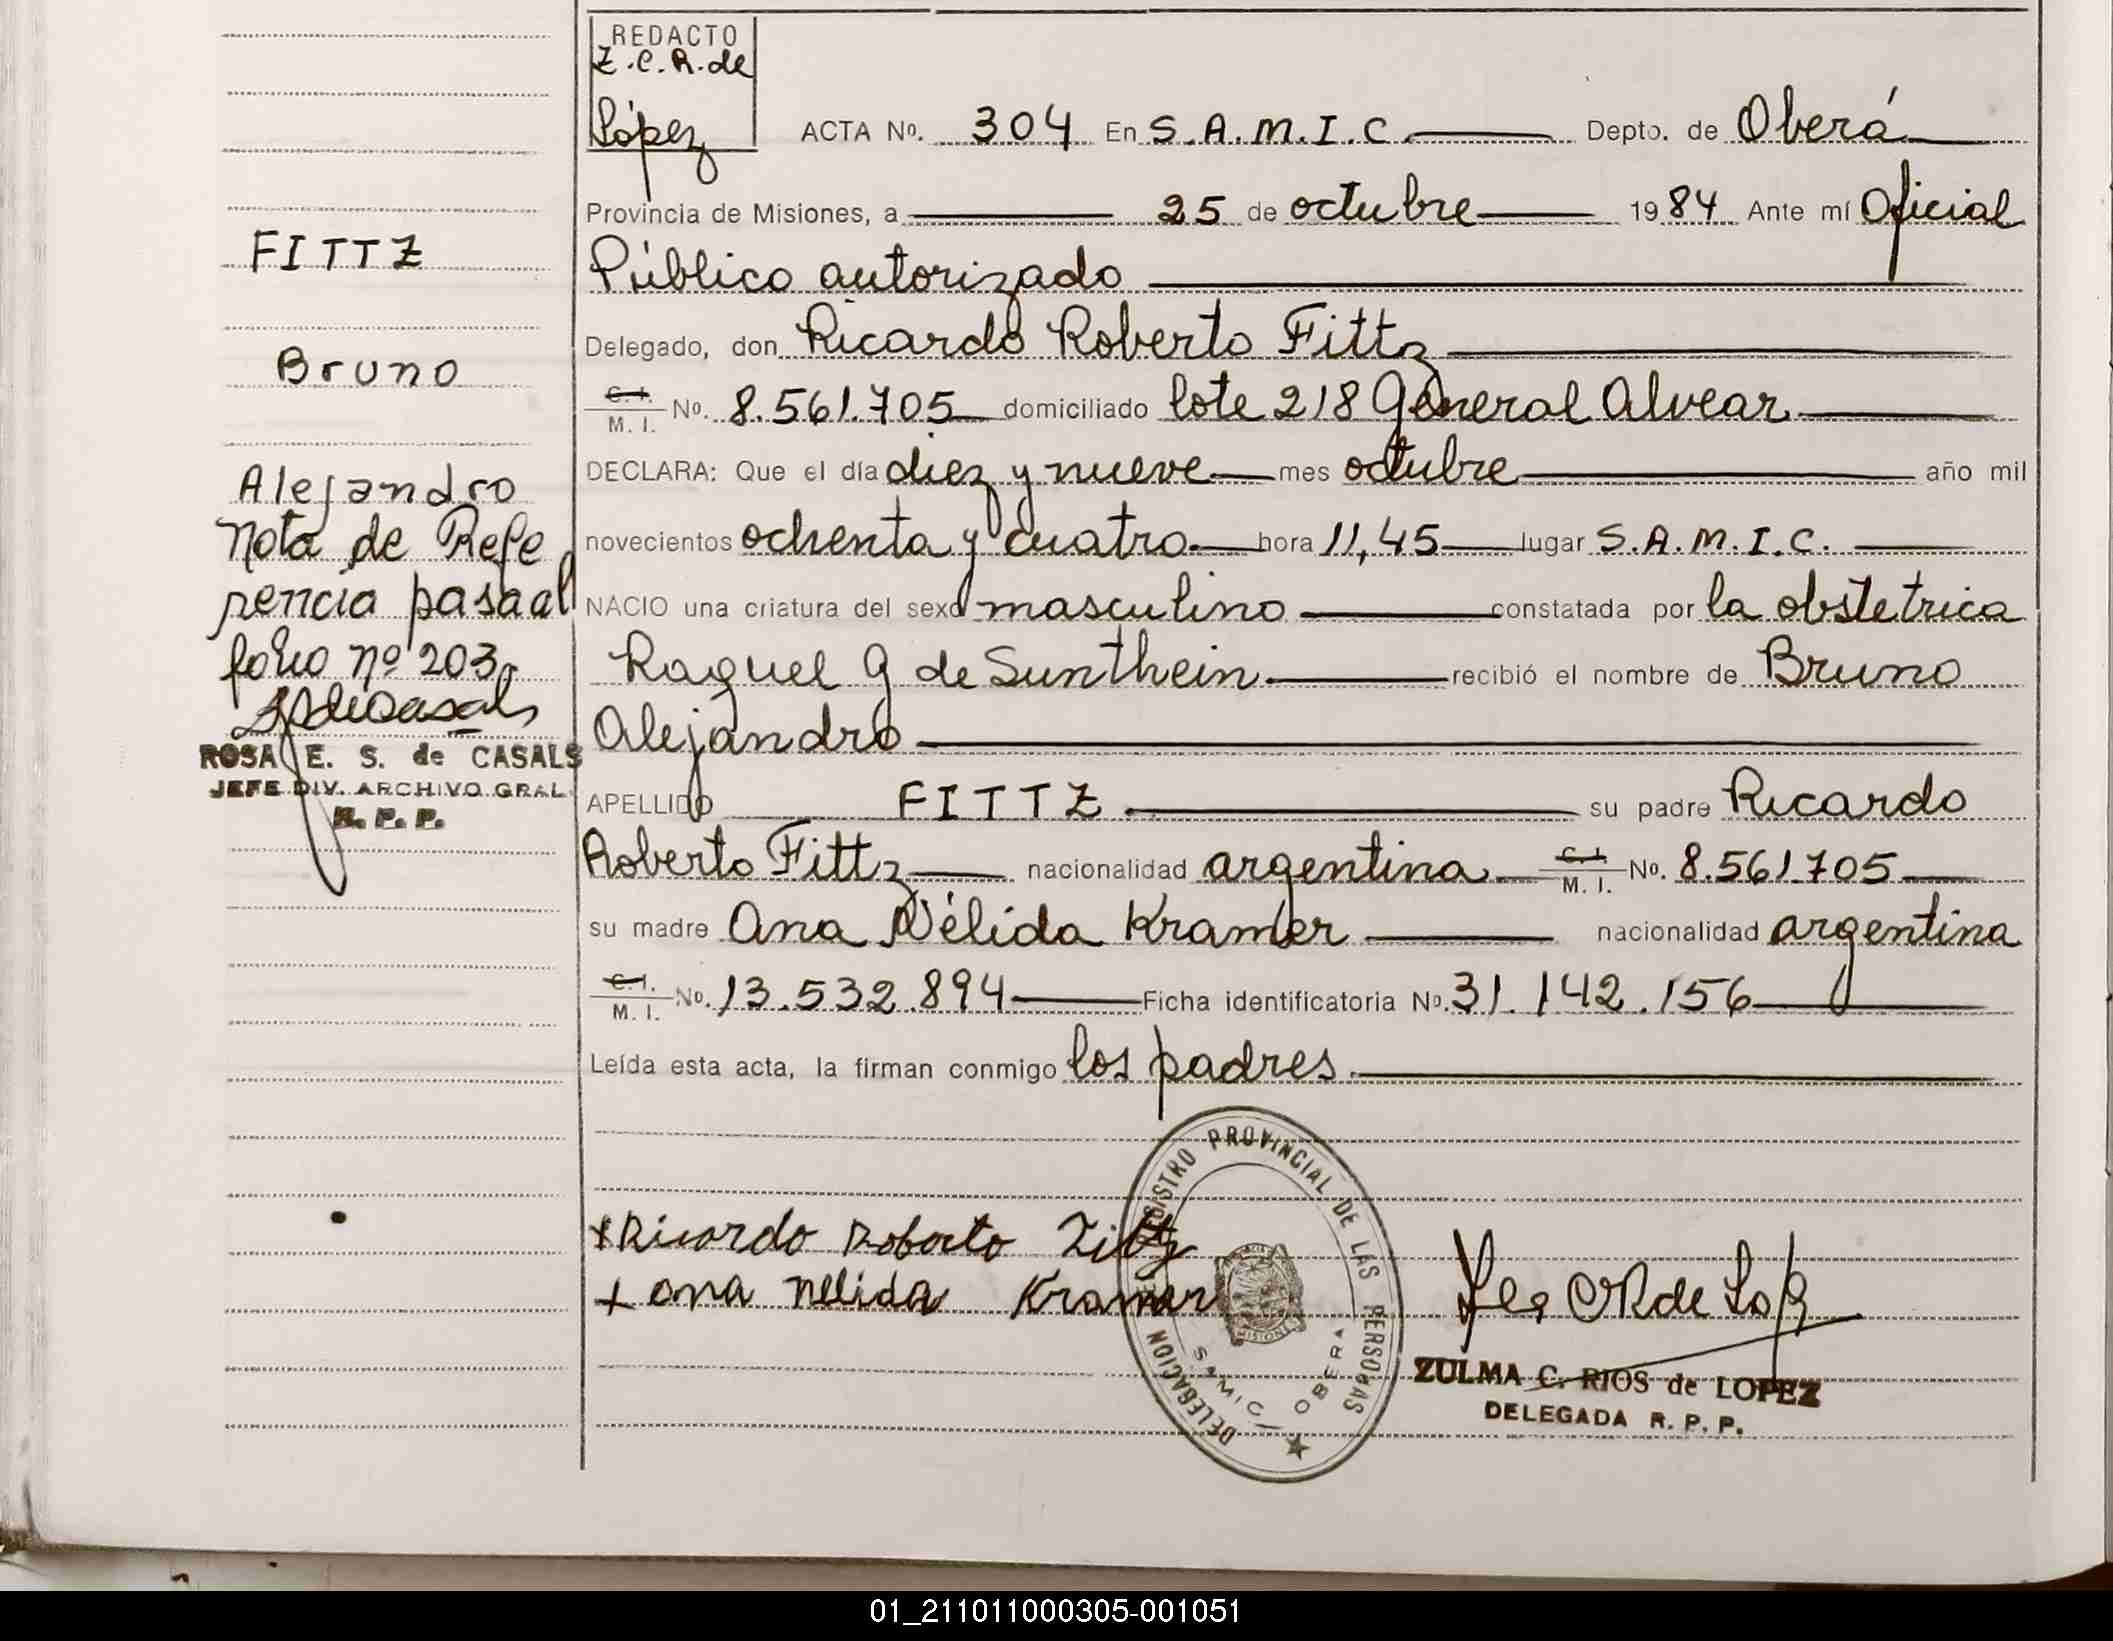 REDACTO
Z.C.R. de
López
ACTA Nº. 304 En S.A.M.I.C. Depto. de Oberá
Provincia de Misiones, a 25 de octubre 1984 Ante mí Oficial
Público autorizado
Delegado, don Ricardo Roberto Fittz
C.I. M.I. Nº. 8.561.705 domiciliado lote 218 General Alvear
DECLARA: Que el día diez y nueve mes octubre año mil
novecientos ochenta y cuatro hora 11,45 lugar S.A.M.I.C.
NACIO una criatura del sexo masculino constatada por la obstetrica
Raquel G de Sunthein recibió el nombre de Bruno
Alejandro
APELLIDO FITTZ su padre Ricardo
Roberto Fittz nacionalidad argentina C.I. M.I. Nº. 8.561.705
su madre Ana Nélida Kramer nacionalidad argentina
C.I. M.I. Nº. 13.532.894 Ficha identificatoria Nº. 31.142.156
Leída esta acta, la firman conmigo los padres.
FITTZ
Bruno
Alejandro
Nota de Refe
rencia pasa al
folio nº 203
ROSA E. S. de CASALS
JEFE DIV. ARCHIVO GRAL.
R. P. P.
+ Ricardo Roberto Fittz
+ ana nelida Kramer
DELEGACION REGISTRO PROVINCIAL DE LAS PERSONAS
MISIONES
SAMIC OBERA
ZULMA C. RIOS de LOPEZ
DELEGADA R. P. P.
01_211011000305-001051